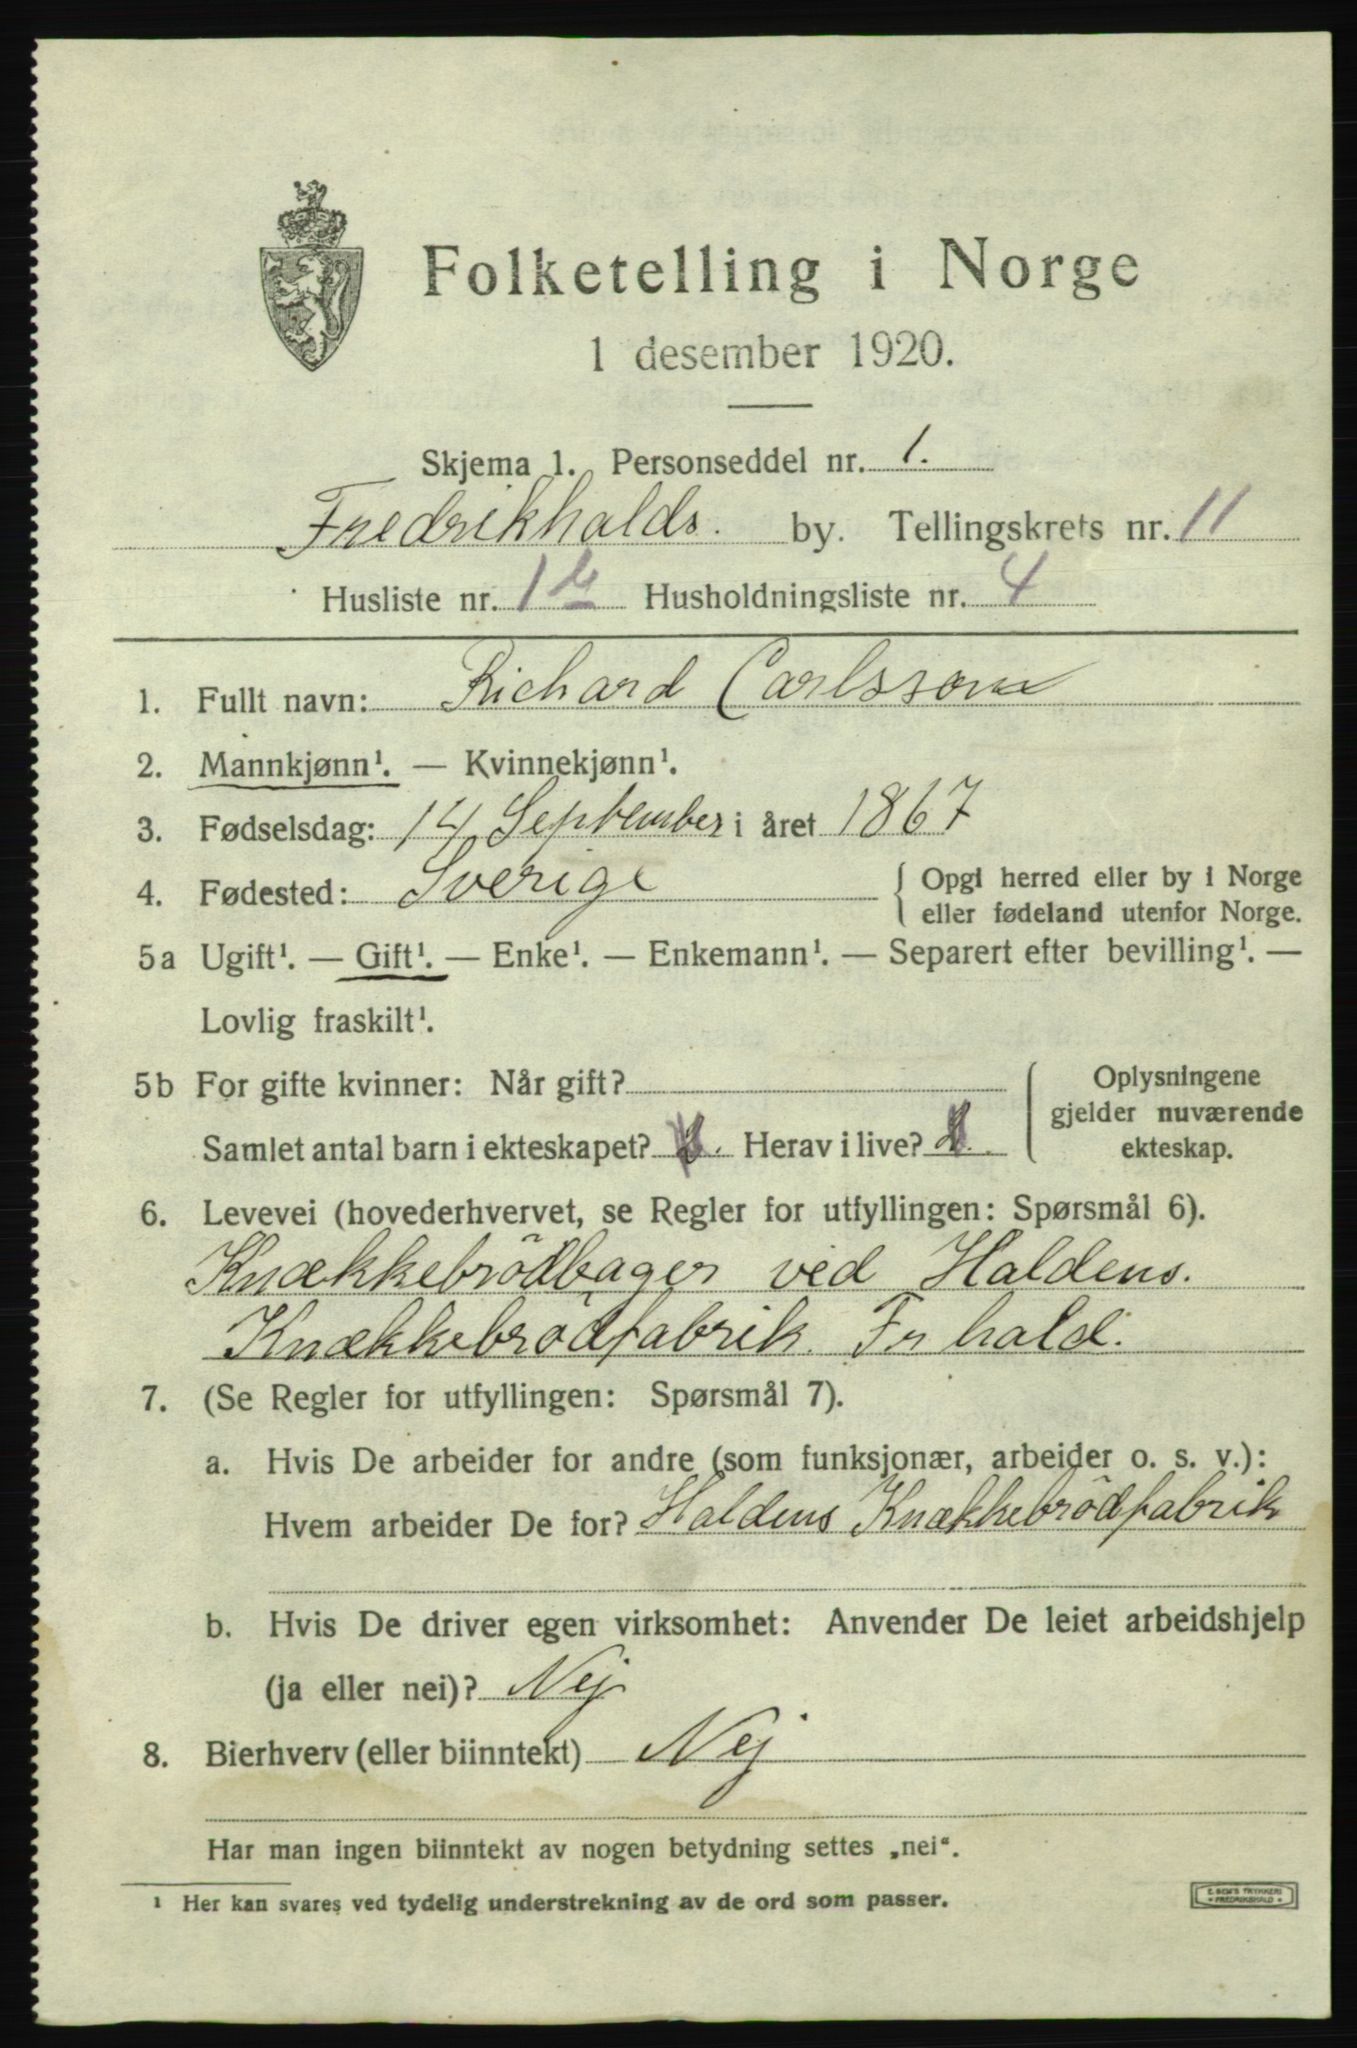 Folketelling i Norge
1 desember 1920.
Skjema 1. Personseddel nr. 1.
Fredrikhalds. by. Tellingskrets nr. 11
Husliste nr. 1 b Husholdningsliste nr. 4
1. Fullt navn: Richard Carlsson
2. Mannkjønn¹. — Kvinnekjønn¹.
3. Fødselsdag: 14 September i året 1867
4. Fødested: Sverige { Opgi herred eller by i Norge
eller fødeland utenfor Norge.
5a Ugift¹. — Gift¹. — Enke¹. — Enkemann¹. — Separert efter bevilling¹. —
Lovlig fraskilt¹.
5b For gifte kvinner: Når gift? { Oplysningene
gjelder nuværende
Samlet antal barn i ekteskapet? Herav i live? ekteskap.
6. Levevei (hovederhvervet, se Regler for utfyllingen: Spørsmål 6).
Knækkebrödbager ved Haldens.
Knækkebrödfabrik. Fr hald.
7. (Se Regler for utfyllingen: Spørsmål 7).
a. Hvis De arbeider for andre (som funksjonær, arbeider o. s. v.):
Hvem arbeider De for? Haldens Knækkebrödfabrik
b. Hvis De driver egen virksomhet: Anvender De leiet arbeidshjelp
(ja eller nei)? Nej
8. Bierhverv (eller biinntekt) Nej
Har man ingen biinntekt av nogen betydning settes „nei“.
¹ Her kan svares ved tydelig understrekning av de ord som passer.
TRYKKERI
FREDRIKSHALD